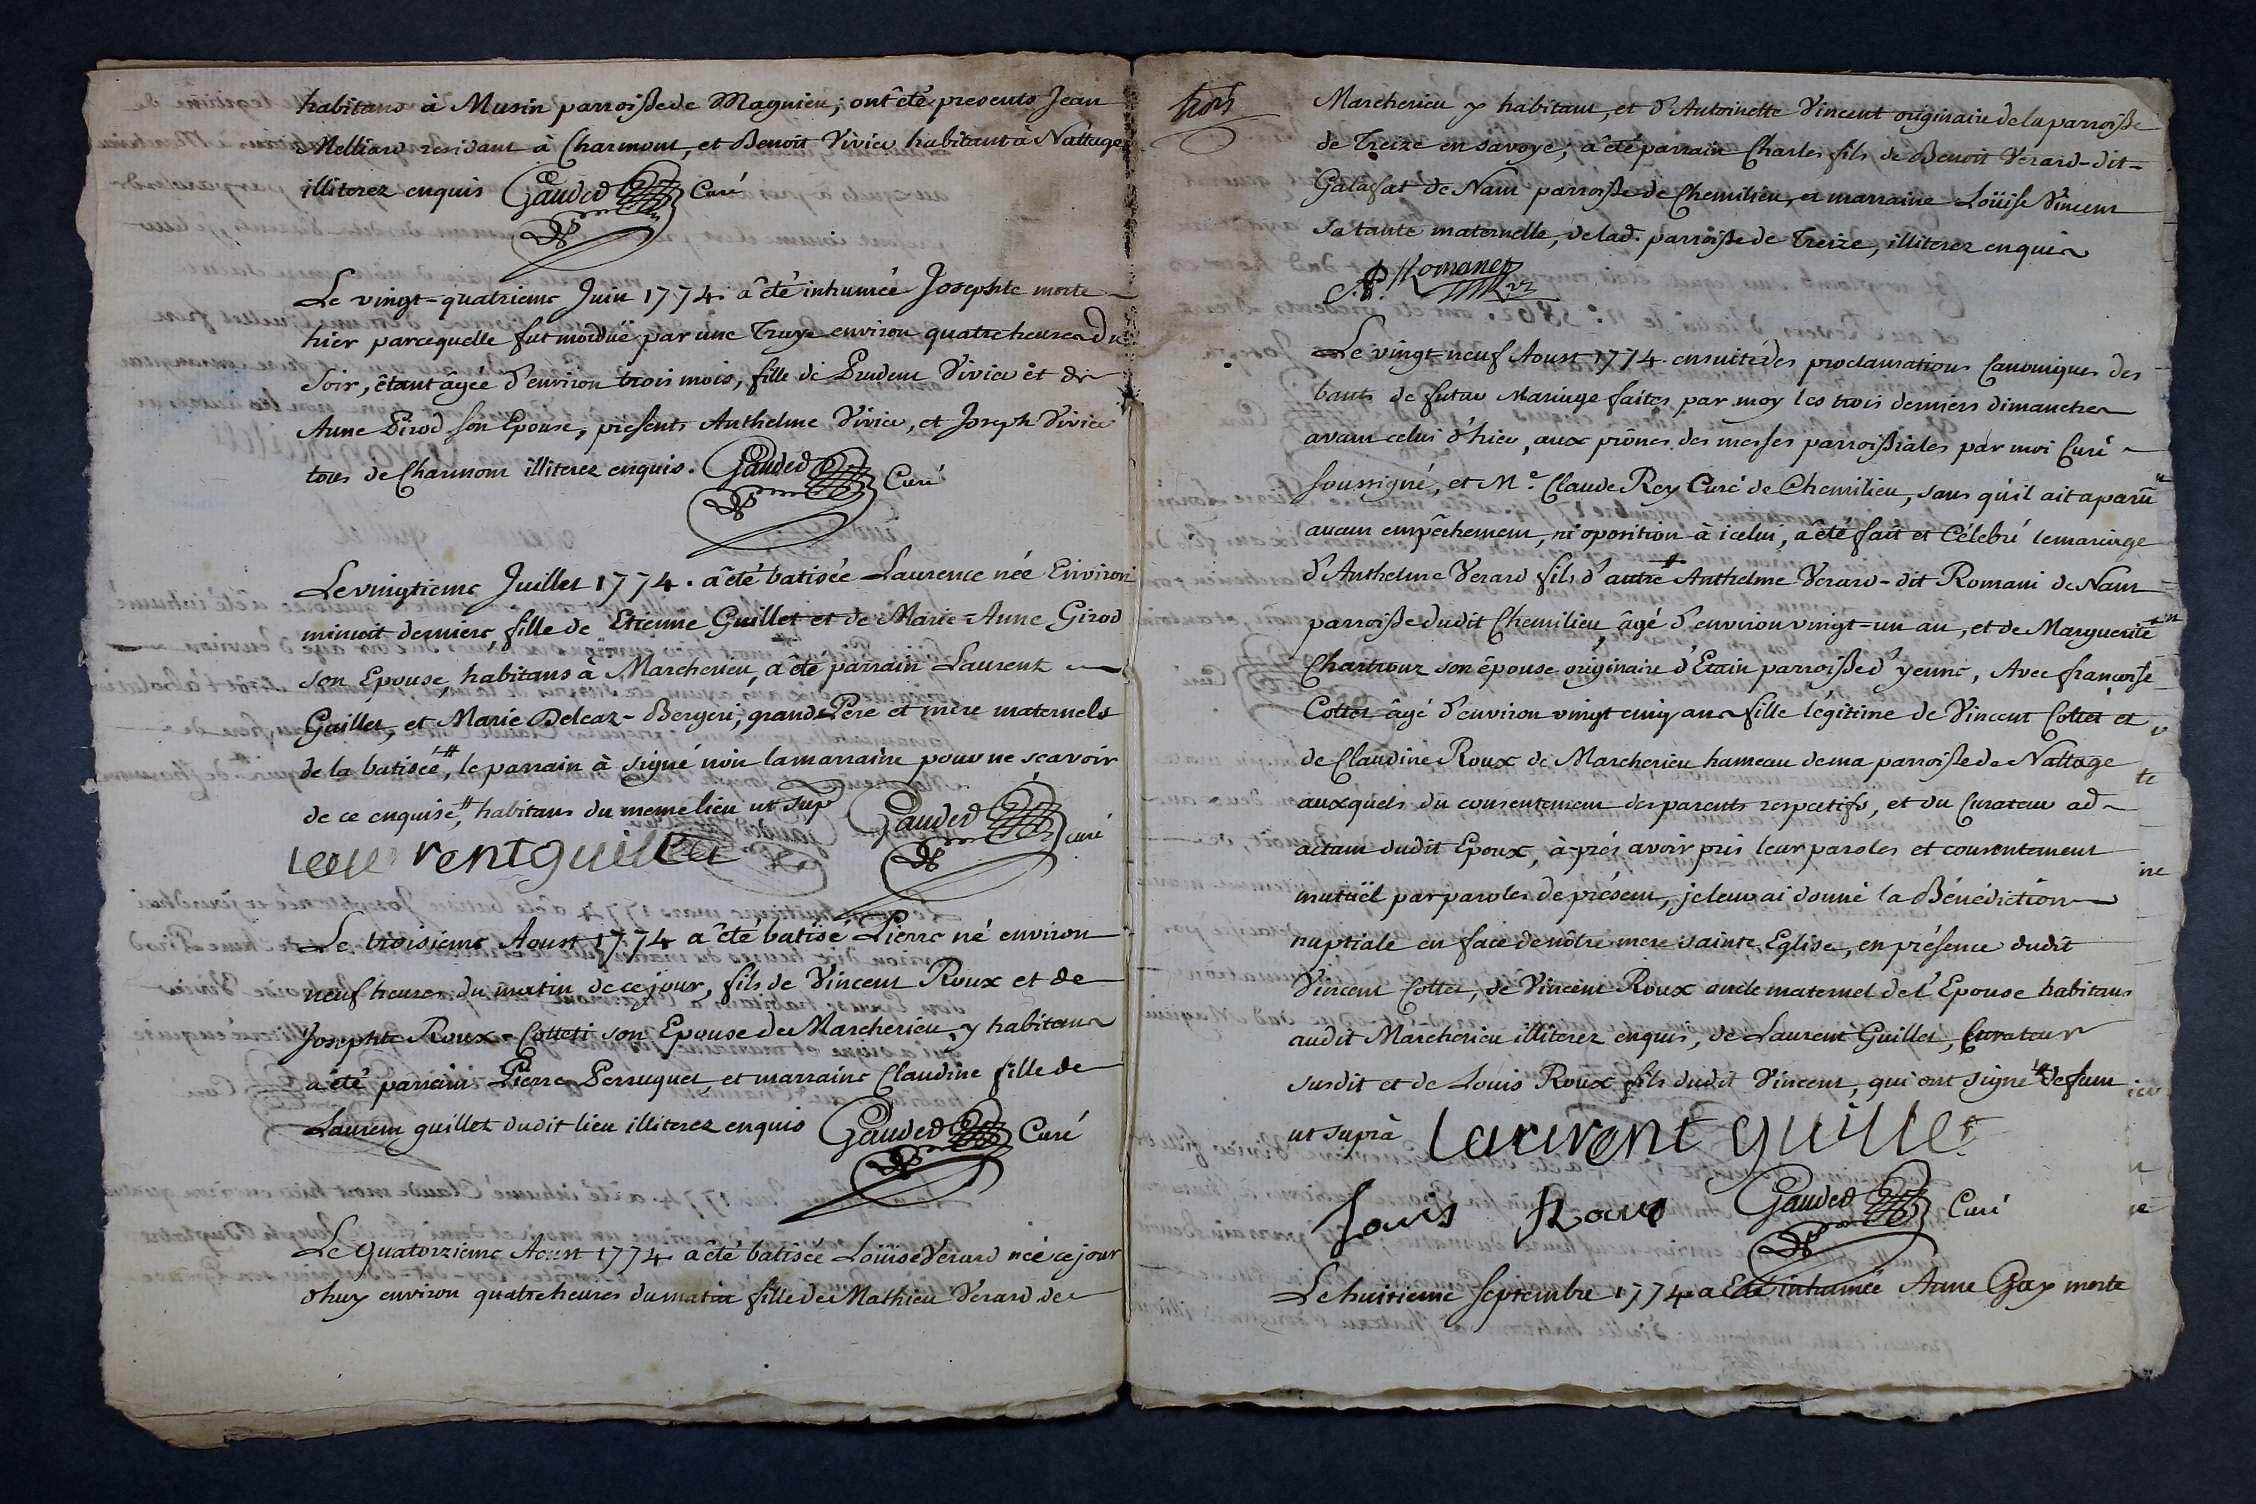 habitans à Musin parroisse de Magnieu; ont été presents Jean
Melliard residant à Charmont, et Benoit Vivier habitant à Nattage
illiterez enquis Gauded Curé
Le vingt-quatrieme Juin 1774. a été inhumée Josephte morte
hier parcequelle fut morduë par une Truye environ quatre heures du
soir, étant âgée d'environ trois mois, fille de Prudent Vivier et de
Anne Pirod son Epouse, présents Anthelme Vivier, et Joseph Vivier
tous de Charmont illiterez enquis. Gauded Curé
Le vingtieme Juillet 1774. a été batisée Laurence née Environ
minuit derniere, fille de Etienne Guillet et de Marie-Anne Girod
son Epouse, habitans à Marcherieu, a été parrain Laurent
Guillet, et Marie Delcaz-Bergeri, grands Pere et mere maternels
de la batisée,# le parrain à signé non la marraine pour ne scavoir
de ce enquise,# habitans du meme lieu ut sup Gauded curé
laurent guillet
Le troisieme Aoust 1774 a été batisé Pierre né environ
neuf heures du matin de ce jour, fils de Vincent Roux et de
Josephte Roux-Colleti son Epouse de Marcherieu y habitans
a été parrain Pierre Perruquet et marraine Claudine fille de
Laurent guillet dudit lieu illiterez enquis Gauded Curé
Le quatorzieme Aoust 1774 a été batisée Loüise Verard née ce jour
dhuy environ quatre heures du matin fille de Mathieu Verard de
trois
Marcherieu y habitant, et d'Antoinette Vincent originaire de la parroisse
de Treize en savoye; a été parrain Charles fils de Benoit Verard-dit-
Galaffat de Nant parroisse de Chemilieu, et marraine Loüise Vincent
sa tante maternelle, de lad. parroisse de Treize, illiterez enquis
Romanez
Le vingt-neuf Aoust 1774 ensuite des proclamations Canoniques des
bants de futur Mariage faites par moy les trois derniers dimanches
avant celui d'hier, aux prônes des messes parroissiales par moi Curé
soussigné, et M.e Claude Rey Curé de Chemilieu, sans qu'il ait aparû
aucun empêchement, ni oposition à icelui, a été fait et Célebré le mariage
d'Anthelme Verard fils d'autre Anthelme Verard-dit Romani de Nant
parroisse dudit Chemilieu, âgé d'environ vingt-un an, et de Marguerite
Chartroux son épouse originaire d'Etain parroisse d'yenne, Avec françoise
Collet âgé d'environ vingt cinq ans fille légitime de Vincent Collet et
de Claudine Roux de Marcherieu hameau de ma parroisse de Nattage
auxquels du consentement des parents respectifs, et du Curateur ad
actum dudit Epoux, à prés avoir pris leur paroles et consentement
mutuël par paroles de présent, je leur ai donné la Bénédiction
nuptiale en face de nôtre mere sainte Eglise, en présence dudit
Vincent Collet, de Vincent Roux oncle maternel de l'Epouse habitans
audit Marcherieu illiterez enquis, de Laurent Guillet, Curateur
susdit et de Louis Roux fils dudit Vincent, qui ont signé # defunt
ut suprà laurent guillet
Louis Roux Gauded Curé
Le huitieme septembre 1774 a Eté inhumée Anne Gay morte